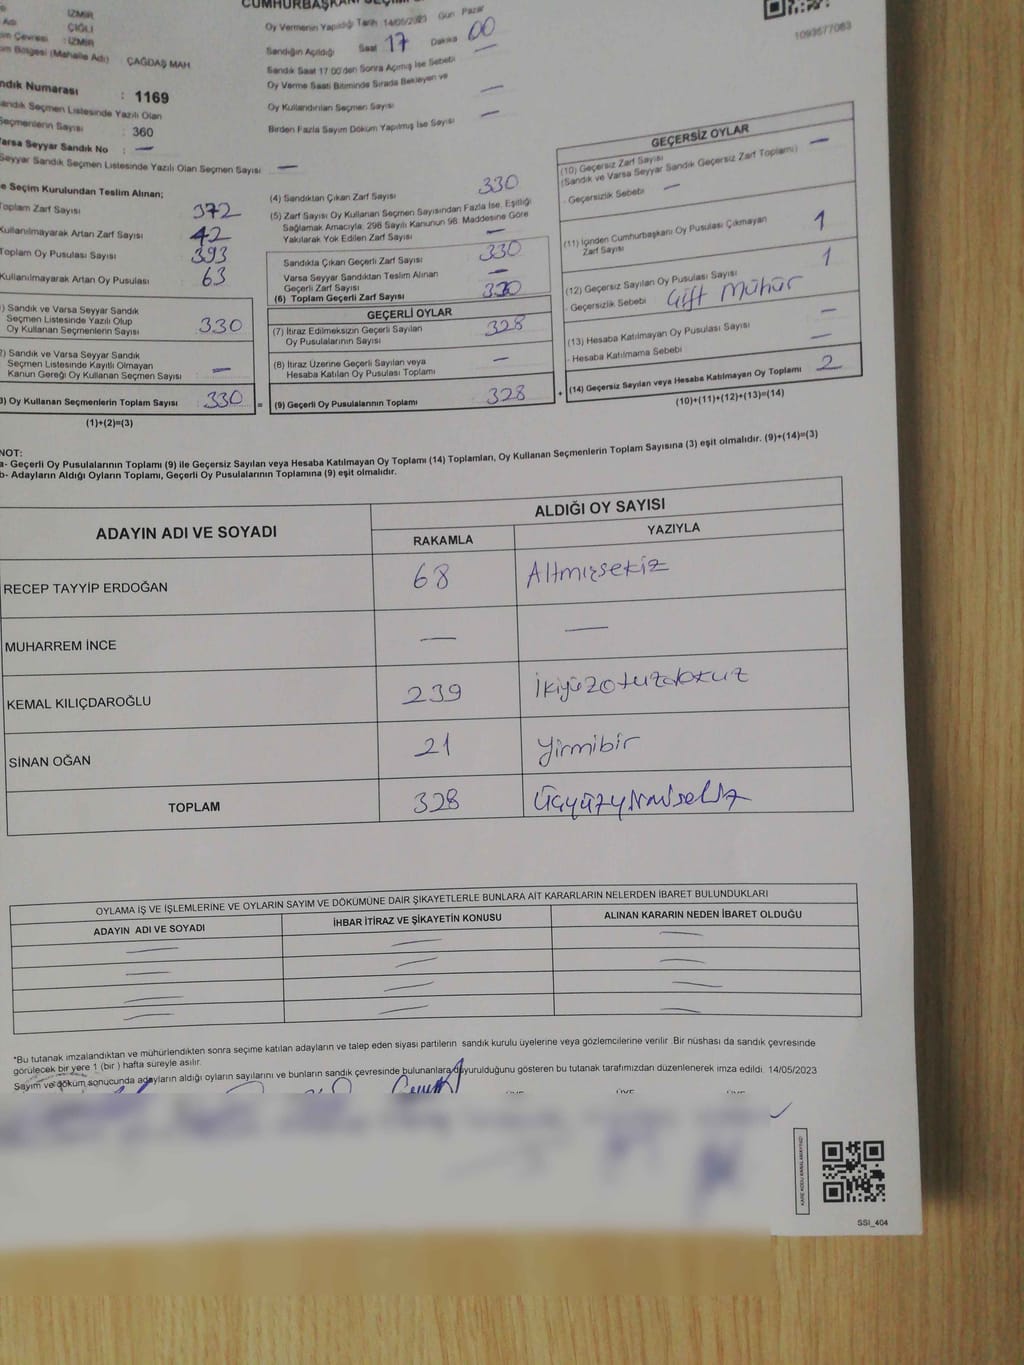 CUMHURBAŞKANI
İZMİR
Adı ÇİĞLİ
Çevresi : İZMİR
Bölgesi (Mahalle Adı) ÇAĞDAŞ MAH
Oy Vermenin Yapıldığı Tarih 14/05/2023 Gün Pazar
Sandığın Açıldığı Saat 17 Dakika 00
Sandık Saat 17:00'den Sonra Açılmış İse Sebebi —
Oy Verme Saati Bitiminde Sırada Bekleyen ve
Oy Kullandırılan Seçmen Sayısı —
Birden Fazla Sayım Döküm Yapılmış İse Sayısı —
1093577083
ndık Numarası : 1169
andık Seçmen Listesinde Yazılı Olan
Seçmenlerin Sayısı : 360
Varsa Seyyar Sandık No : —
Seyyar Sandık Seçmen Listesinde Yazılı Olan Seçmen Sayısı : —
e Seçim Kurulundan Teslim Alınan;
Toplam Zarf Sayısı 372
Kullanılmayarak Artan Zarf Sayısı 42
Toplam Oy Pusulası Sayısı 393
Kullanılmayarak Artan Oy Pusulası 63
) Sandık ve Varsa Seyyar Sandık
Seçmen Listesinde Yazılı Olup
Oy Kullanan Seçmenlerin Sayısı 330
2) Sandık ve Varsa Seyyar Sandık
Seçmen Listesinde Kayıtlı Olmayan
Kanun Gereği Oy Kullanan Seçmen Sayısı —
3) Oy Kullanan Seçmenlerin Toplam Sayısı 330 =
(1)+(2)=(3)
(4) Sandıktan Çıkan Zarf Sayısı 330
(5) Zarf Sayısı Oy Kullanan Seçmen Sayısından Fazla İse, Eşitliği
Sağlamak Amacıyla, 298 Sayılı Kanunun 98. Maddesine Göre
Yakılarak Yok Edilen Zarf Sayısı —
Sandıkla Çıkan Geçerli Zarf Sayısı 330
Varsa Seyyar Sandıktan Teslim Alınan
Geçerli Zarf Sayısı —
(6) Toplam Geçerli Zarf Sayısı 330
GEÇERLİ OYLAR
(7) İtiraz Edilmeksizin Geçerli Sayılan
Oy Pusulalarının Sayısı 328
(8) İtiraz Üzerine Geçerli Sayılan veya
Hesaba Katılan Oy Pusulası Toplamı —
(9) Geçerli Oy Pusulalarının Toplamı 328 +
GEÇERSİZ OYLAR
(10) Geçersiz Zarf Sayısı —
(Sandık ve Varsa Seyyar Sandık Geçersiz Zarf Toplamı)
- Geçersizlik Sebebi —
(11) İçinden Cumhurbaşkanı Oy Pusulası Çıkmayan
Zarf Sayısı 1
(12) Geçersiz Sayılan Oy Pusulası Sayısı 1
- Geçersizlik Sebebi Çift Mühür
(13) Hesaba Katılmayan Oy Pusulası Sayısı —
- Hesaba Katılmama Sebebi —
(14) Geçersiz Sayılan veya Hesaba Katılmayan Oy Toplamı 2
(10)+(11)+(12)+(13)=(14)
NOT:
a- Geçerli Oy Pusulalarının Toplamı (9) ile Geçersiz Sayılan veya Hesaba Katılmayan Oy Toplamı (14) Toplamları, Oy Kullanan Seçmenlerin Toplam Sayısına (3) eşit olmalıdır. (9)+(14)=(3)
b- Adayların Aldığı Oyların Toplamı, Geçerli Oy Pusulalarının Toplamına (9) eşit olmalıdır.
ADAYIN ADI VE SOYADI ALDIĞI OY SAYISI
RAKAMLA YAZIYLA
RECEP TAYYİP ERDOĞAN 68 Altmışsekiz
MUHARREM İNCE — —
KEMAL KILIÇDAROĞLU 239 İkiyüzotuzdokuz
SİNAN OĞAN 21 Yirmibir
TOPLAM 328 Üçyüzyirmisekiz
OYLAMA İŞ VE İŞLEMLERİNE VE OYLARIN SAYIM VE DÖKÜMÜNE DAİR ŞİKAYETLERLE BUNLARA AİT KARARLARIN NELERDEN İBARET BULUNDUKLARI
ADAYIN ADI VE SOYADI İHBAR İTİRAZ VE ŞİKAYETİN KONUSU ALINAN KARARIN NEDEN İBARET OLDUĞU
— — —
— — —
— — —
— — —
*Bu tutanak imzalandıktan ve mühürlendikten sonra seçime katılan adayların ve talep eden siyasi partilerin sandık kurulu üyelerine veya gözlemcilerine verilir. Bir nüshası da sandık çevresinde
görülecek bir yere 1 (bir ) hafta süreyle asılır.
Sayım ve döküm sonucunda adayların aldığı oyların sayılarını ve bunların sandık çevresinde bulunanlara duyurulduğunu gösteren bu tutanak tarafımızdan düzenlenerek imza edildi. 14/05/2023
ÜYE ÜYE ÜYE
SSI_404